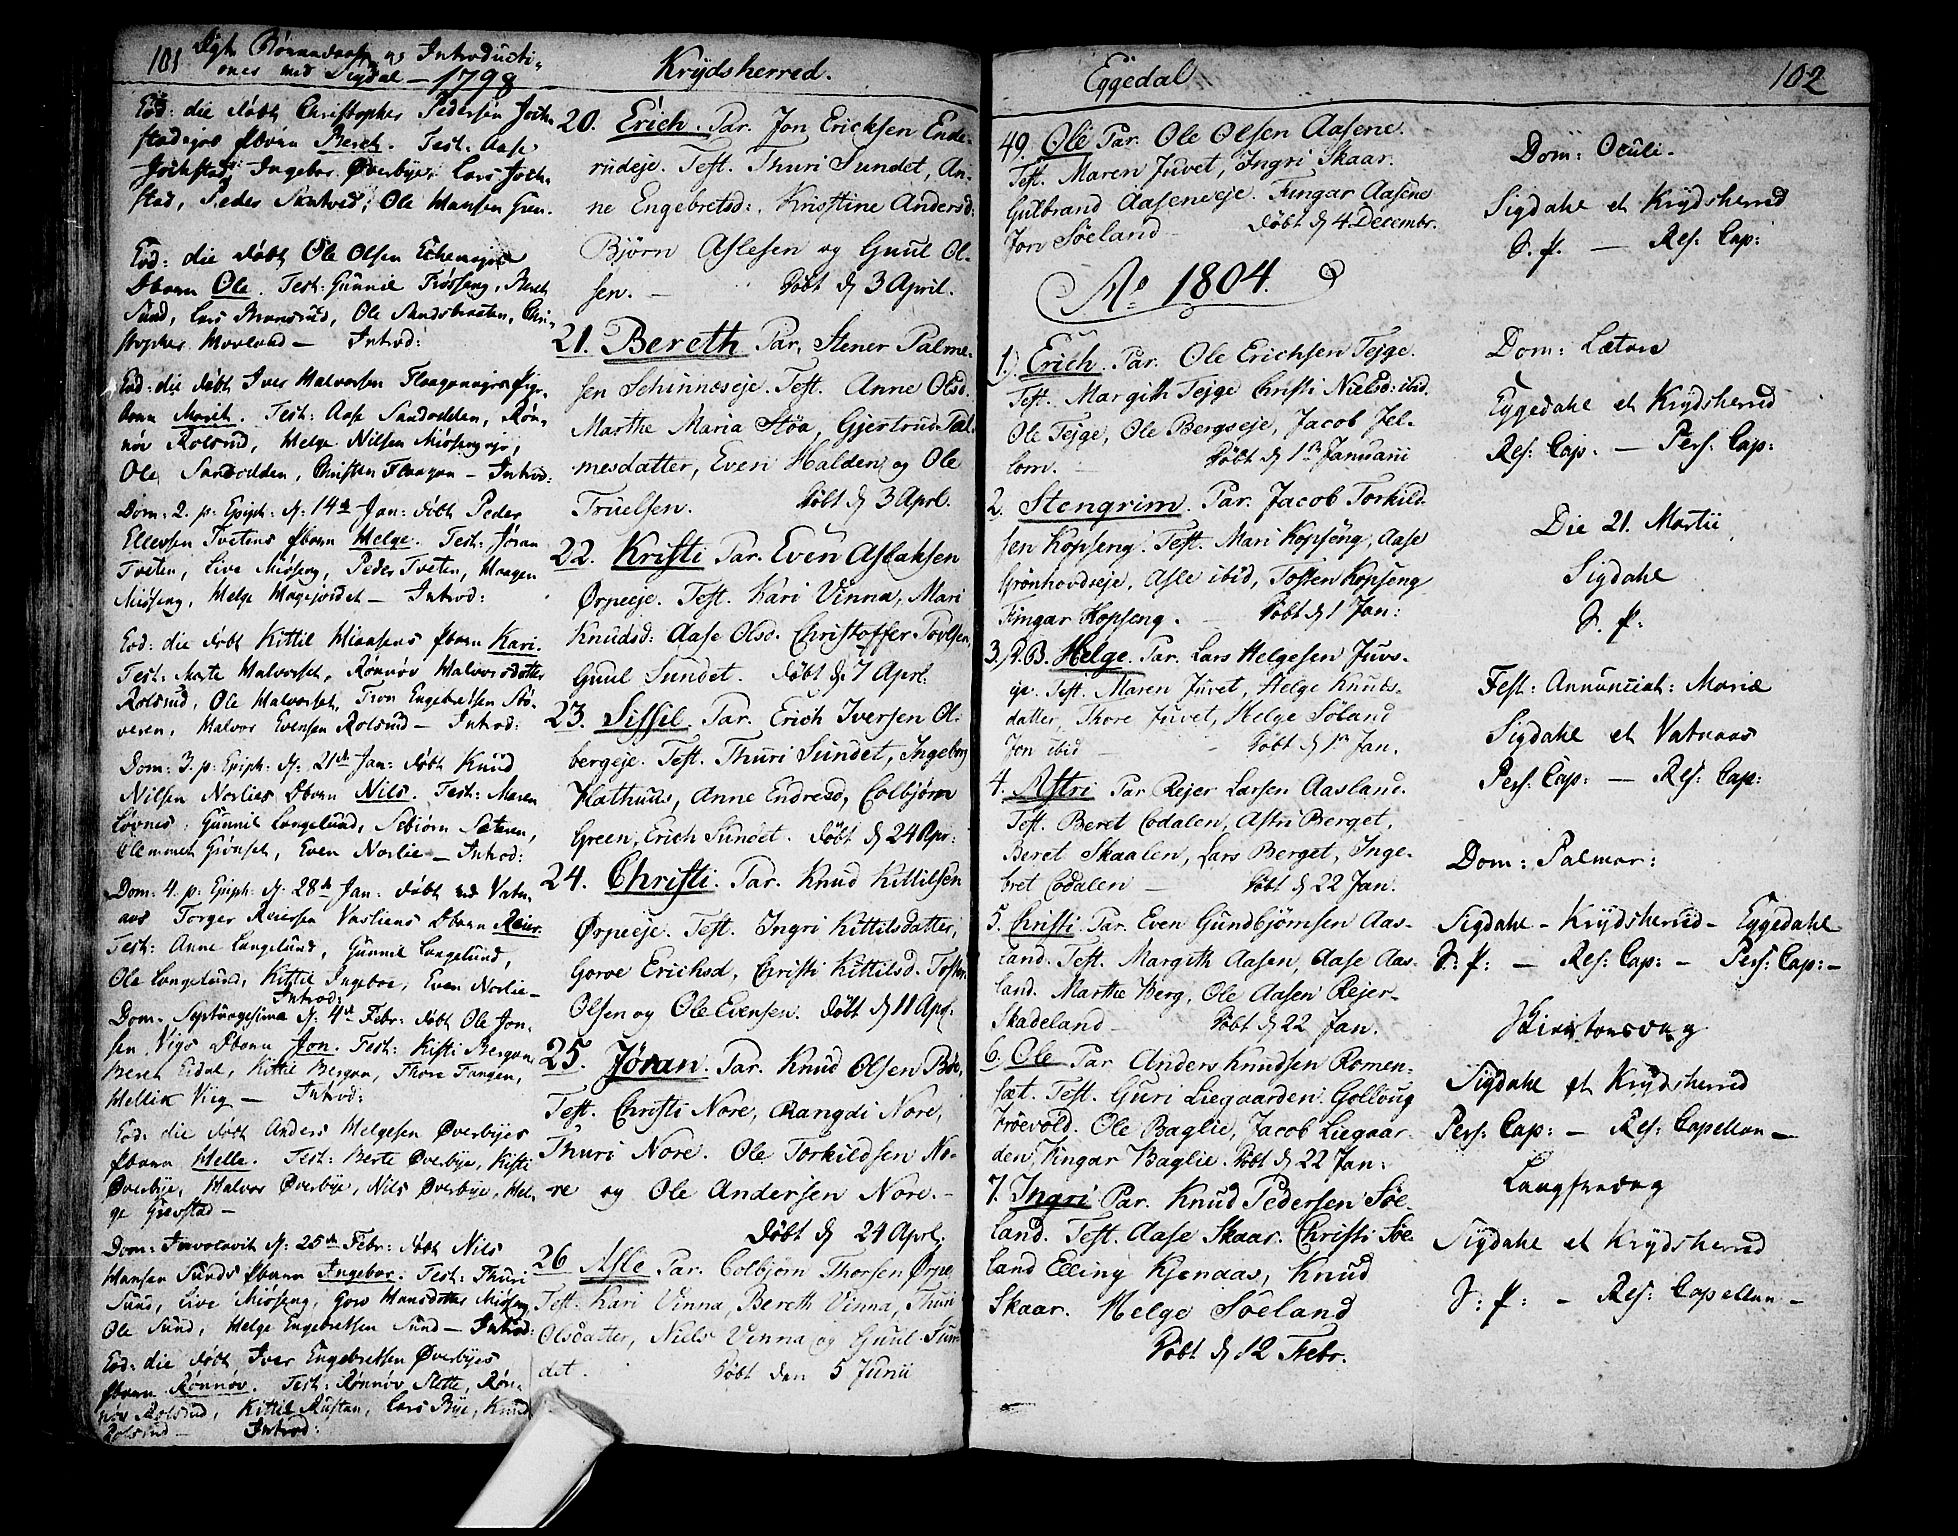 101 Døbte Børn og Introducti-
ones ved Sigdal — 1798
Eod: die døbt Christopher Pedersen Joch-
stadejes Øbarn Bereth. Test: Aase
Jochstad, Ingebor Øverbye, Lars Joch-
stad, Peder , Ole Hansen
Eod: die døbt Ole Olsen
Øbarn Ole. Test: Gunnil , Bereth
Sund, Lars , Ole Sandsbraaten, Chri-
stopher Moeland — Introd:
Eod: die døbt Iver Halvorsen
barn Mareth. Test: Aase Sandodden, Røn-
nøv Rolsrud, Helge Nilsen ,
Ole Sandodden, Christen — Introd:
Dom: 2. p: Epiph: d: 14de Jan: døbt Peder
Ellevsen Tvetens Øbarn Helge. Test: Jøran
Tveten, Live Miøseng, Peder Tveten, Haagen
Miøseng, Helge — Introd:
Eod: die døbt Kittil Øbarn Kari.
Test: Marte , Rønnøv Halvorsdatter
Rolsrud, Ole , Tron Engebretsen
, Halvor Evensen Rolsrud — Introd:
Dom: 3. p: Epiph: d: 21de Jan: døbt Knud
Nilsen Norlies Øbarn Nils. Test: Maren
Løvnes, Gunnil Langelund, ,
Clemmet , Even Norlie — Introd:
Dom: 4. p: Epiph: d: 28de Jan: døbt ved Vatn-
aas Torger Reiersen Øbarn Reier.
Test: Anne Langelund, Gunnil Langelund,
Ole Langelund, Kittil Ingeboe, Even Norlie —
Introd:
Dom: Septuagesima d: 4de Febr: døbt Ole Jon-
sen Vigs Øbarn Jon. Test: Kisti Bergan,
Beret Eidal, Kittil Bergan, Thore Tangen,
Hellik Vieg — Introd:
Eod: die døbt Anders Helgesen Øverbyes
Øbarn Helle. Test: Berte Øverbye, Kisti
Øverbye, Halvor Øverbye, Nils Øverbye, Hel-
ge —
Dom: Invocavit d: 25de Febr: døbt Nils
Hansen Sunds Øbarn Ingebor. Test: Thuri
Sund, Live Miøseng, Goro Hansdatter Miøseng,
Ole Sund, Helge Engebretsen Sund — Introd:
Eod: die døbt Iver Engebretsen Øverbyes
Øbarn Rønnøv. Test: Rønnøv Slette, Røn-
nøv Rolsrud, Kittil Rustan, Lars Bye, Knud
Rolsrud — Introd:
Krÿdsherred.
20. Erich. Par. Jon Ericksen Ende-
rudeje. Test. Thuri Sundet, An-
ne Engebretsd:, Kristine Andersd:
Bjørn Aslesen og Guul Ol-
sen. — Døbt d 3 April.
21. Bereth Par. Stener Palme-
sen Schinneseje. Test. Anne Olsd.
Marthe Maria Støa, Gjertrud Pal-
mesdatter, Even Halden og Ole
Truelsen. Døbt d 3 Aprl.
22. Kristi Par. Even Aslaksen
Ørpeeje. Test. Kari Vinna, Mari
Knudsd: Aase Olsd. Christoffer Tovlsen,
Guul Sundet. Døbt d 7 Aprl.
23. Sissil. Par. Erich Iversen Ol-
bergeje. Test. Thuri Sundet, Ingeborg
Hathuus, Anne Endresd, Colbjørn
Green, Erich Sundet. Døbt d 24 Apr:
24. Christi. Par. Knud Kittilsen
Ørpeeje. Test. Ingri Kittilsdatter,
Goroe Erichsd, Christi Kittilsd. Tosten
Olsen og Ole Evensen. Døbt d 11 Apr.
25. Jöran. Par. Knud Olsen Bøe,
Test. Christi Nore, Rangdi Nore,
Thuri Nore. Ole Torkildsen No-
re og Ole Andersen Nore. —
Døbt d 24 Aprl.
26 Asle Par. Colbjørn Thorsen Ørpe
Test. Kari Vinna, Bereth Vinna, Thuri
Olsdatter, Niels Vinna og Guul Sun-
det. Døbt den 5 Junii
Eggedal
49. Ole Par. Ole Olsen Aasene.
Test. Maren Juvet, Ingri Skaar.
Gulbrand Aaseneeje. Fingar Aasene
Jon Söeland — Døbt d 4 Decembr.
Ao 1804.
1.) Erich. Par. Ole Erichsen Tejge.
Test. Margith Tejge Christi Nielsd: ibid.
Ole Tejge, Ole Bergseje, Jacob Jel-
lom. — Døbt d 1 Januarii
2. Stengrim. Par. Jacob Torkild-
sen Kopseng. Test. Mari Kopseng, Aase
Grønhovdseje, Asle ibid, Tosten Kopseng
Fingar Kopseng. — Døbt d 1 Jan:
3. N.B. Helge. Par. Lars Helgesen Juvs-
eje. Test. Maren Juvet, Helge Knuds-
datter, Thore Juvet, Helge Söland
Jon ibid — Døbt d 1 Jan.
4. Astri Par Rejer Larsen Aasland.
Test. Beret Codalen, Astri Berget,
Beret Skaalen, Lars Berget, Inge-
bret Codalen — Døbt d 22 Jan.
5. Christi. Par. Even Gundbjørnsen Aas-
land. Test. Margith Aasen, Aase Aas-
land. Marthe Berg, Ole Aasen Rejer
Skadeland — Døbt d 22 Jan.
6. Ole Par Anders Knudsen Romen-
sæt. Test. Guri Liegaarden. Gollaug
Trøevold. Ole Baglie, Jacob Liegaar-
den, Fingar Baglie. Døbt d 22 Jan:
7. Ingri Par. Knud Pedersen Söe-
land. Test. Aase Skaar. Christi Söe-
land Elling Kjendaas, Knud
Skaar. Helge Söeland
Døbt d 12 Febr.
102
Dom: Oculi.
Sigdahl et Krÿdsherred
S. p. — Res: Cap:
Dom: Lætare
Eggedahl et Krÿdsherred
Res: Cap: — Pers: Cap:
Die 21. Martii
Sigdahl
S. p:
Fest: Annunciat: Mariæ
Sigdahl et Vatnaas
Pers: Cap: — Res: Cap:
Dom: Palmar:
Sigdahl — Krÿdsherred — Eggedahl
S: p: — Res: Cap: — Pers: Cap: —
Skiertorsdag
Sigdahl et Krÿdsherred
Pers: Cap: — Res: Capellan —
Langfredag
Sigdahl et Krÿdsherred
S: p: — Res: Capellan —